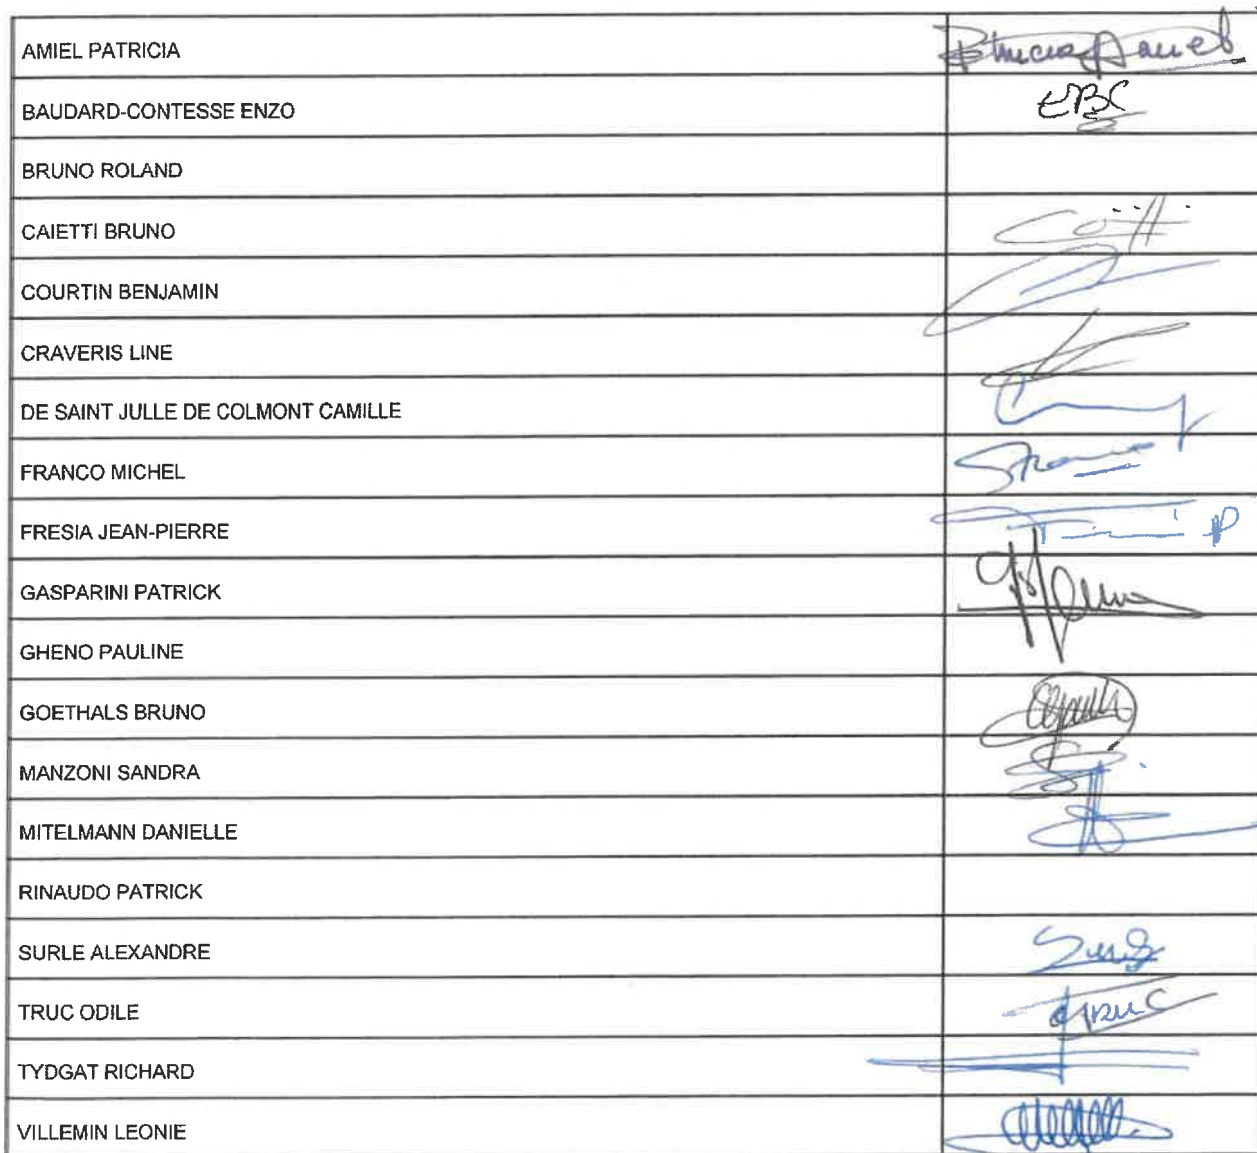 AMIEL PATRICIA
BAUDARD-CONTESSE ENZO EBC
BRUNO ROLAND
CAIETTI BRUNO
COURTIN BENJAMIN
CRAVERIS LINE
DE SAINT JULLE DE COLMONT CAMILLE
FRANCO MICHEL
FRESIA JEAN-PIERRE
GASPARINI PATRICK
GHENO PAULINE
GOETHALS BRUNO
MANZONI SANDRA
MITELMANN DANIELLE
RINAUDO PATRICK
SURLE ALEXANDRE
TRUC ODILE
TYDGAT RICHARD
VILLEMIN LEONIE